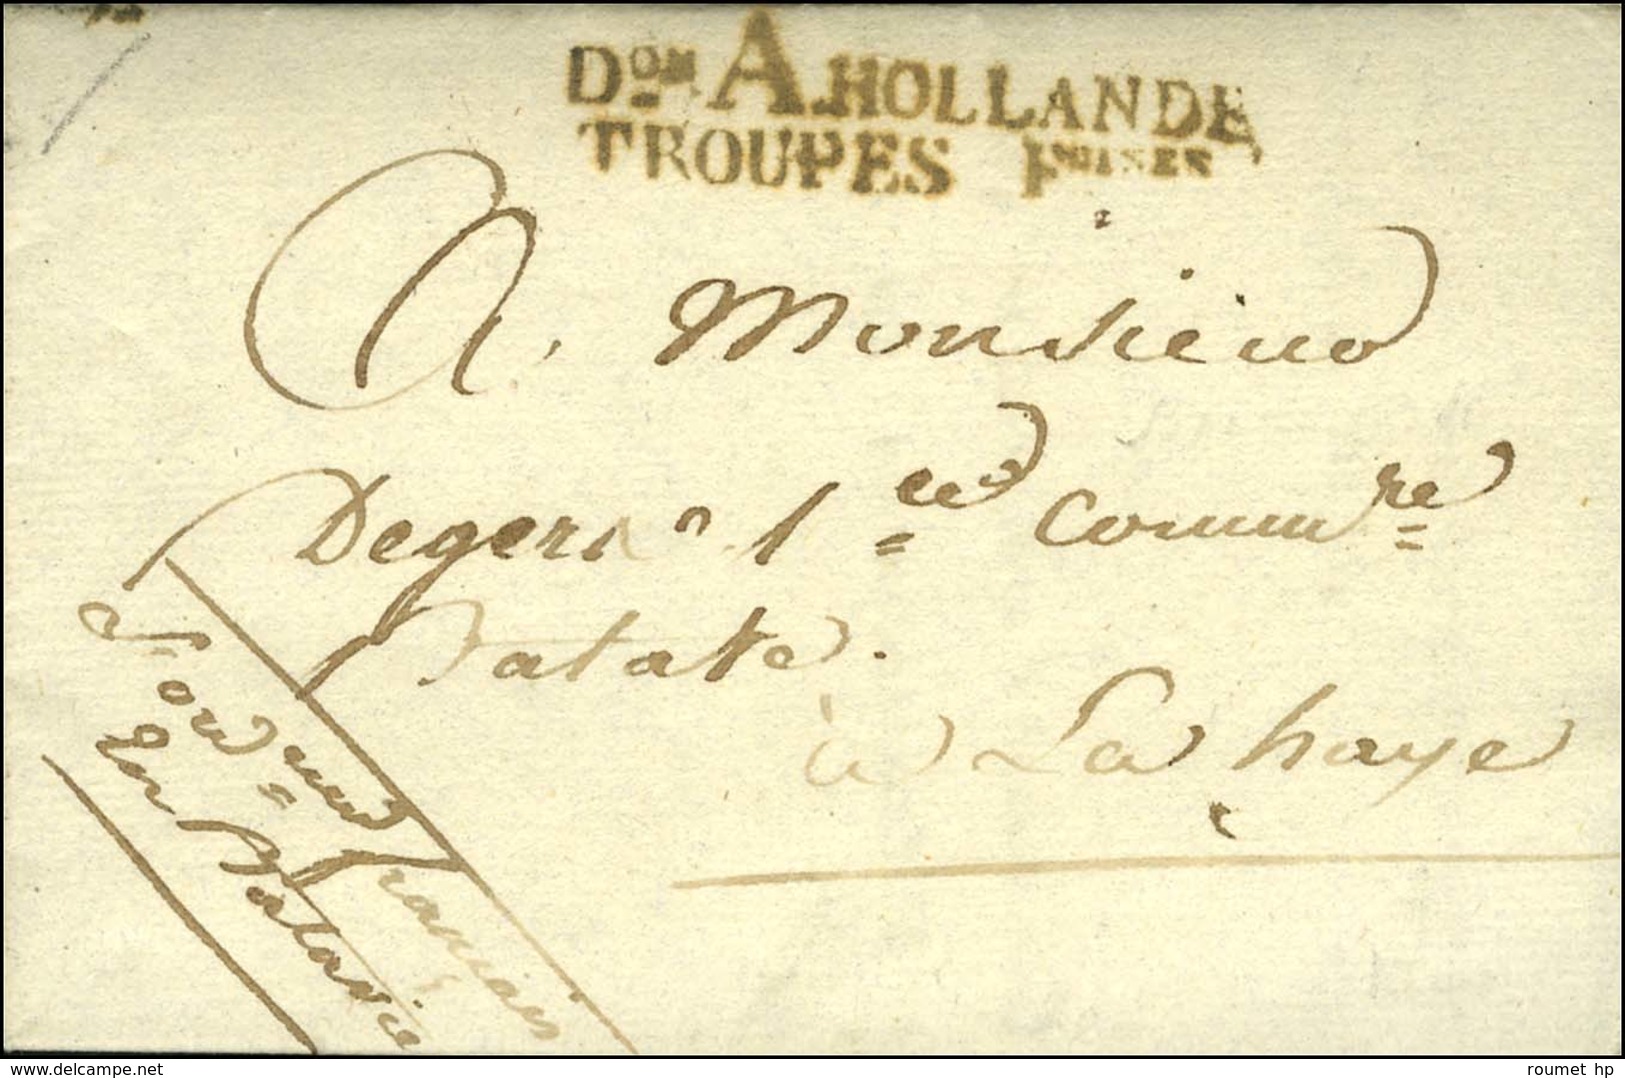 Don A HOLLANDE
TROUPES Fçaises
A Monsieur
Degeri n 1er Commre
Batave.
à La haye
L'ord eur français
En Batavie
delcampe.net
roumet hp